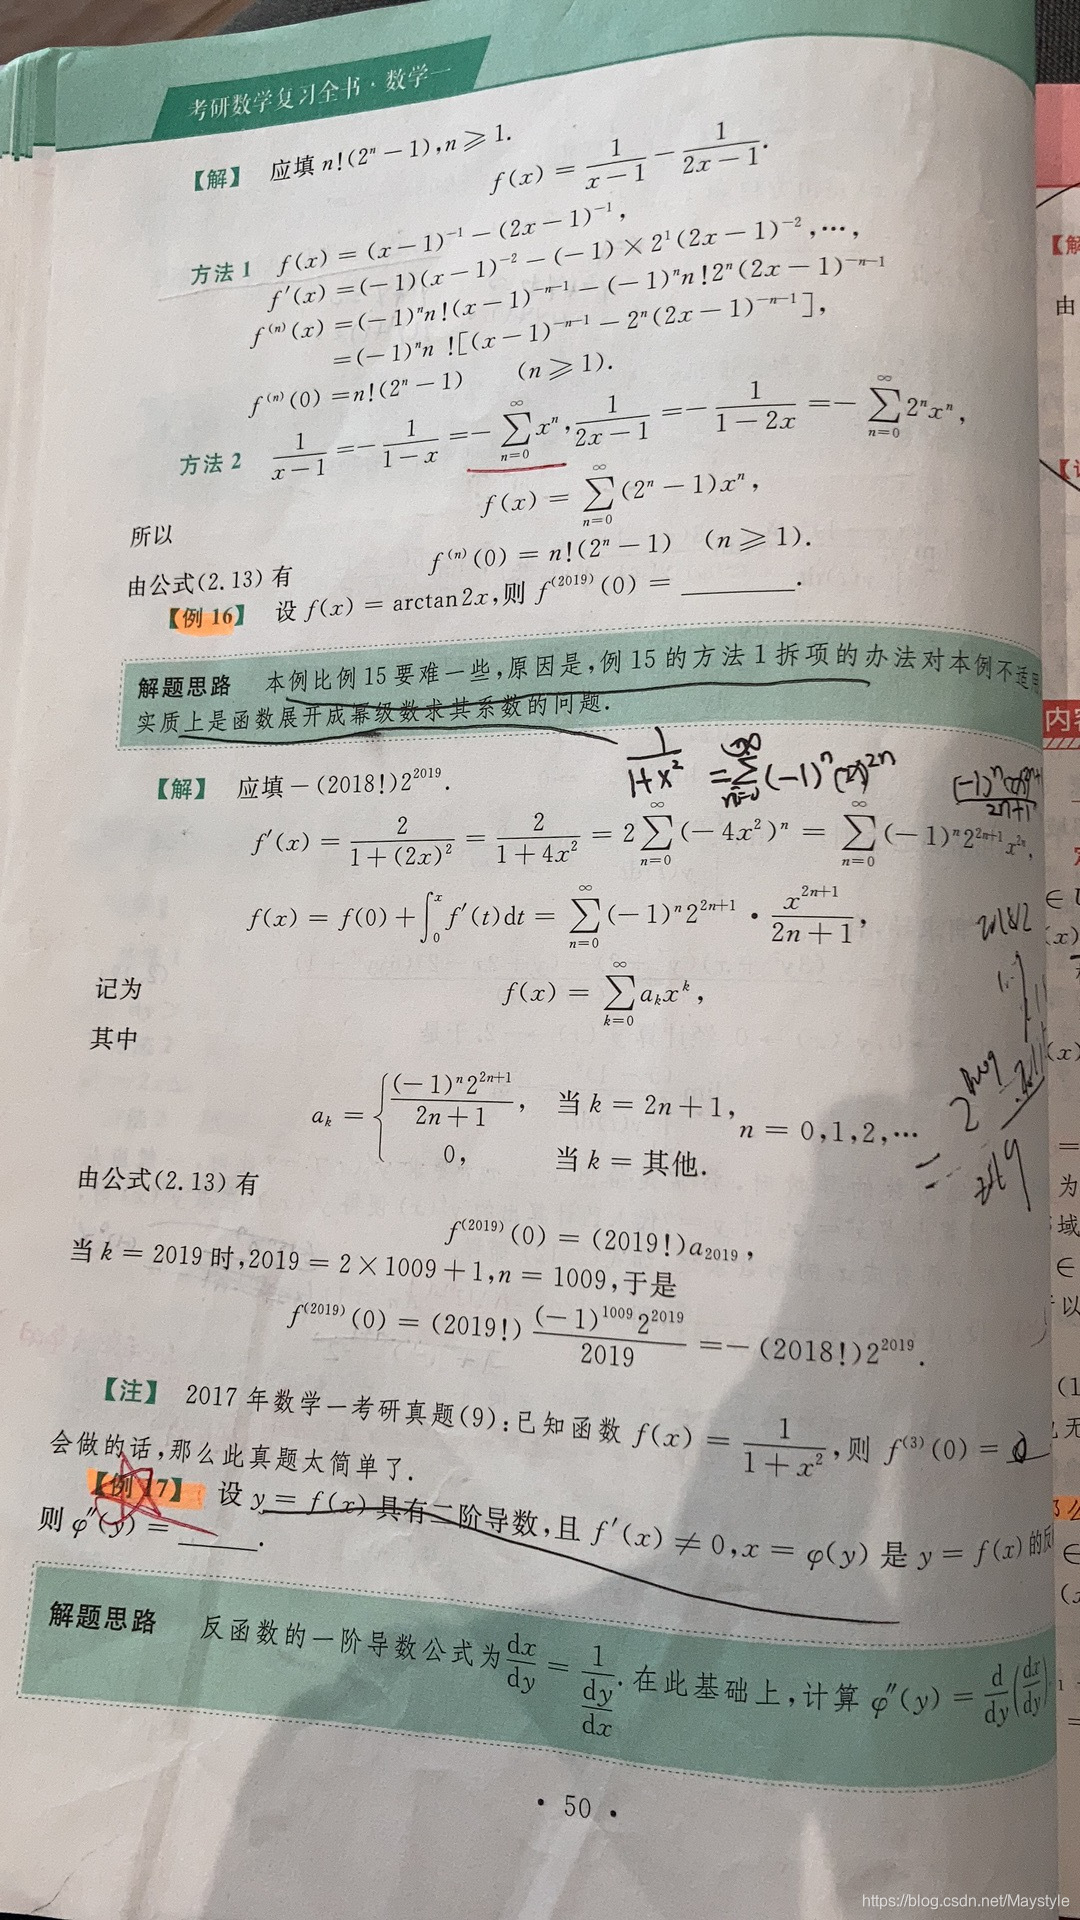 考研数学复习全书·数学一
【解】 应填 n!(2ⁿ－1),n≥1.
f(x) = 1/(x－1) － 1/(2x－1).
方法 1 f(x) = (x－1)⁻¹－(2x－1)⁻¹,
f′(x) =(－1)(x－1)⁻²－(－1)×2¹(2x－1)⁻²,…,
f⁽ⁿ⁾(x) =(－1)ⁿn!(x－1)⁻ⁿ⁻¹－(－1)ⁿn!2ⁿ(2x－1)⁻ⁿ⁻¹
=(－1)ⁿn![(x－1)⁻ⁿ⁻¹－2ⁿ(2x－1)⁻ⁿ⁻¹],
f⁽ⁿ⁾(0) =n!(2ⁿ－1) (n≥1).
方法 2 1/(x－1) =－ 1/(1－x) =－ ∑_{n=0}^{∞} xⁿ, 1/(2x－1) =－ 1/(1－2x) =－ ∑_{n=0}^{∞} 2ⁿxⁿ,
所以 f(x) = ∑_{n=0}^{∞} (2ⁿ－1)xⁿ,
由公式(2.13)有 f⁽ⁿ⁾(0) = n!(2ⁿ－1) (n≥1).
【例 16】 设 f(x) = arctan2x,则 f⁽²⁰¹⁹⁾(0) = ______.
解题思路 本例比例 15 要难一些,原因是,例 15 的方法 1 拆项的办法对本例不适
实质上是函数展开成幂级数求其系数的问题.
1/(1+x²) = ∑_{n=0}^{∞} (-1)ⁿ(2x)²ⁿ
【解】 应填－(2018!)2²⁰¹⁹.
f′(x) = 2/(1＋(2x)²) = 2/(1＋4x²) = 2∑_{n=0}^{∞} (－4x²)ⁿ = ∑_{n=0}^{∞} (－1)ⁿ2²ⁿ⁺¹x²ⁿ,
f(x) = f(0)＋∫₀ˣ f′(t)dt = ∑_{n=0}^{∞} (－1)ⁿ2²ⁿ⁺¹ · x²ⁿ⁺¹/(2n＋1),
记为 f(x) = ∑_{k=0}^{∞} aₖxᵏ,
其中
aₖ = { (－1)ⁿ2²ⁿ⁺¹/(2n＋1), 当 k = 2n＋1, n = 0,1,2,…
0, 当 k = 其他.
由公式(2.13)有
f⁽²⁰¹⁹⁾(0) = (2019!)a₂₀₁₉,
当 k = 2019 时,2019 = 2×1009＋1,n = 1009,于是
f⁽²⁰¹⁹⁾(0) = (2019!) (－1)¹⁰⁰⁹2²⁰¹⁹/2019 =－(2018!)2²⁰¹⁹.
【注】 2017 年数学一考研真题(9):已知函数 f(x) = 1/(1＋x²),则 f⁽³⁾(0) = 0
会做的话,那么此真题太简单了.
【例 17】 设 y = f(x)具有二阶导数,且 f′(x) ≠ 0,x = φ(y) 是 y = f(x)的反
则 φ″(y) = ______.
解题思路 反函数的一阶导数公式为 dx/dy = 1/(dy/dx). 在此基础上,计算 φ″(y) = d/dy(dx/dy)
· 50 ·
https://blog.csdn.net/Maystyle